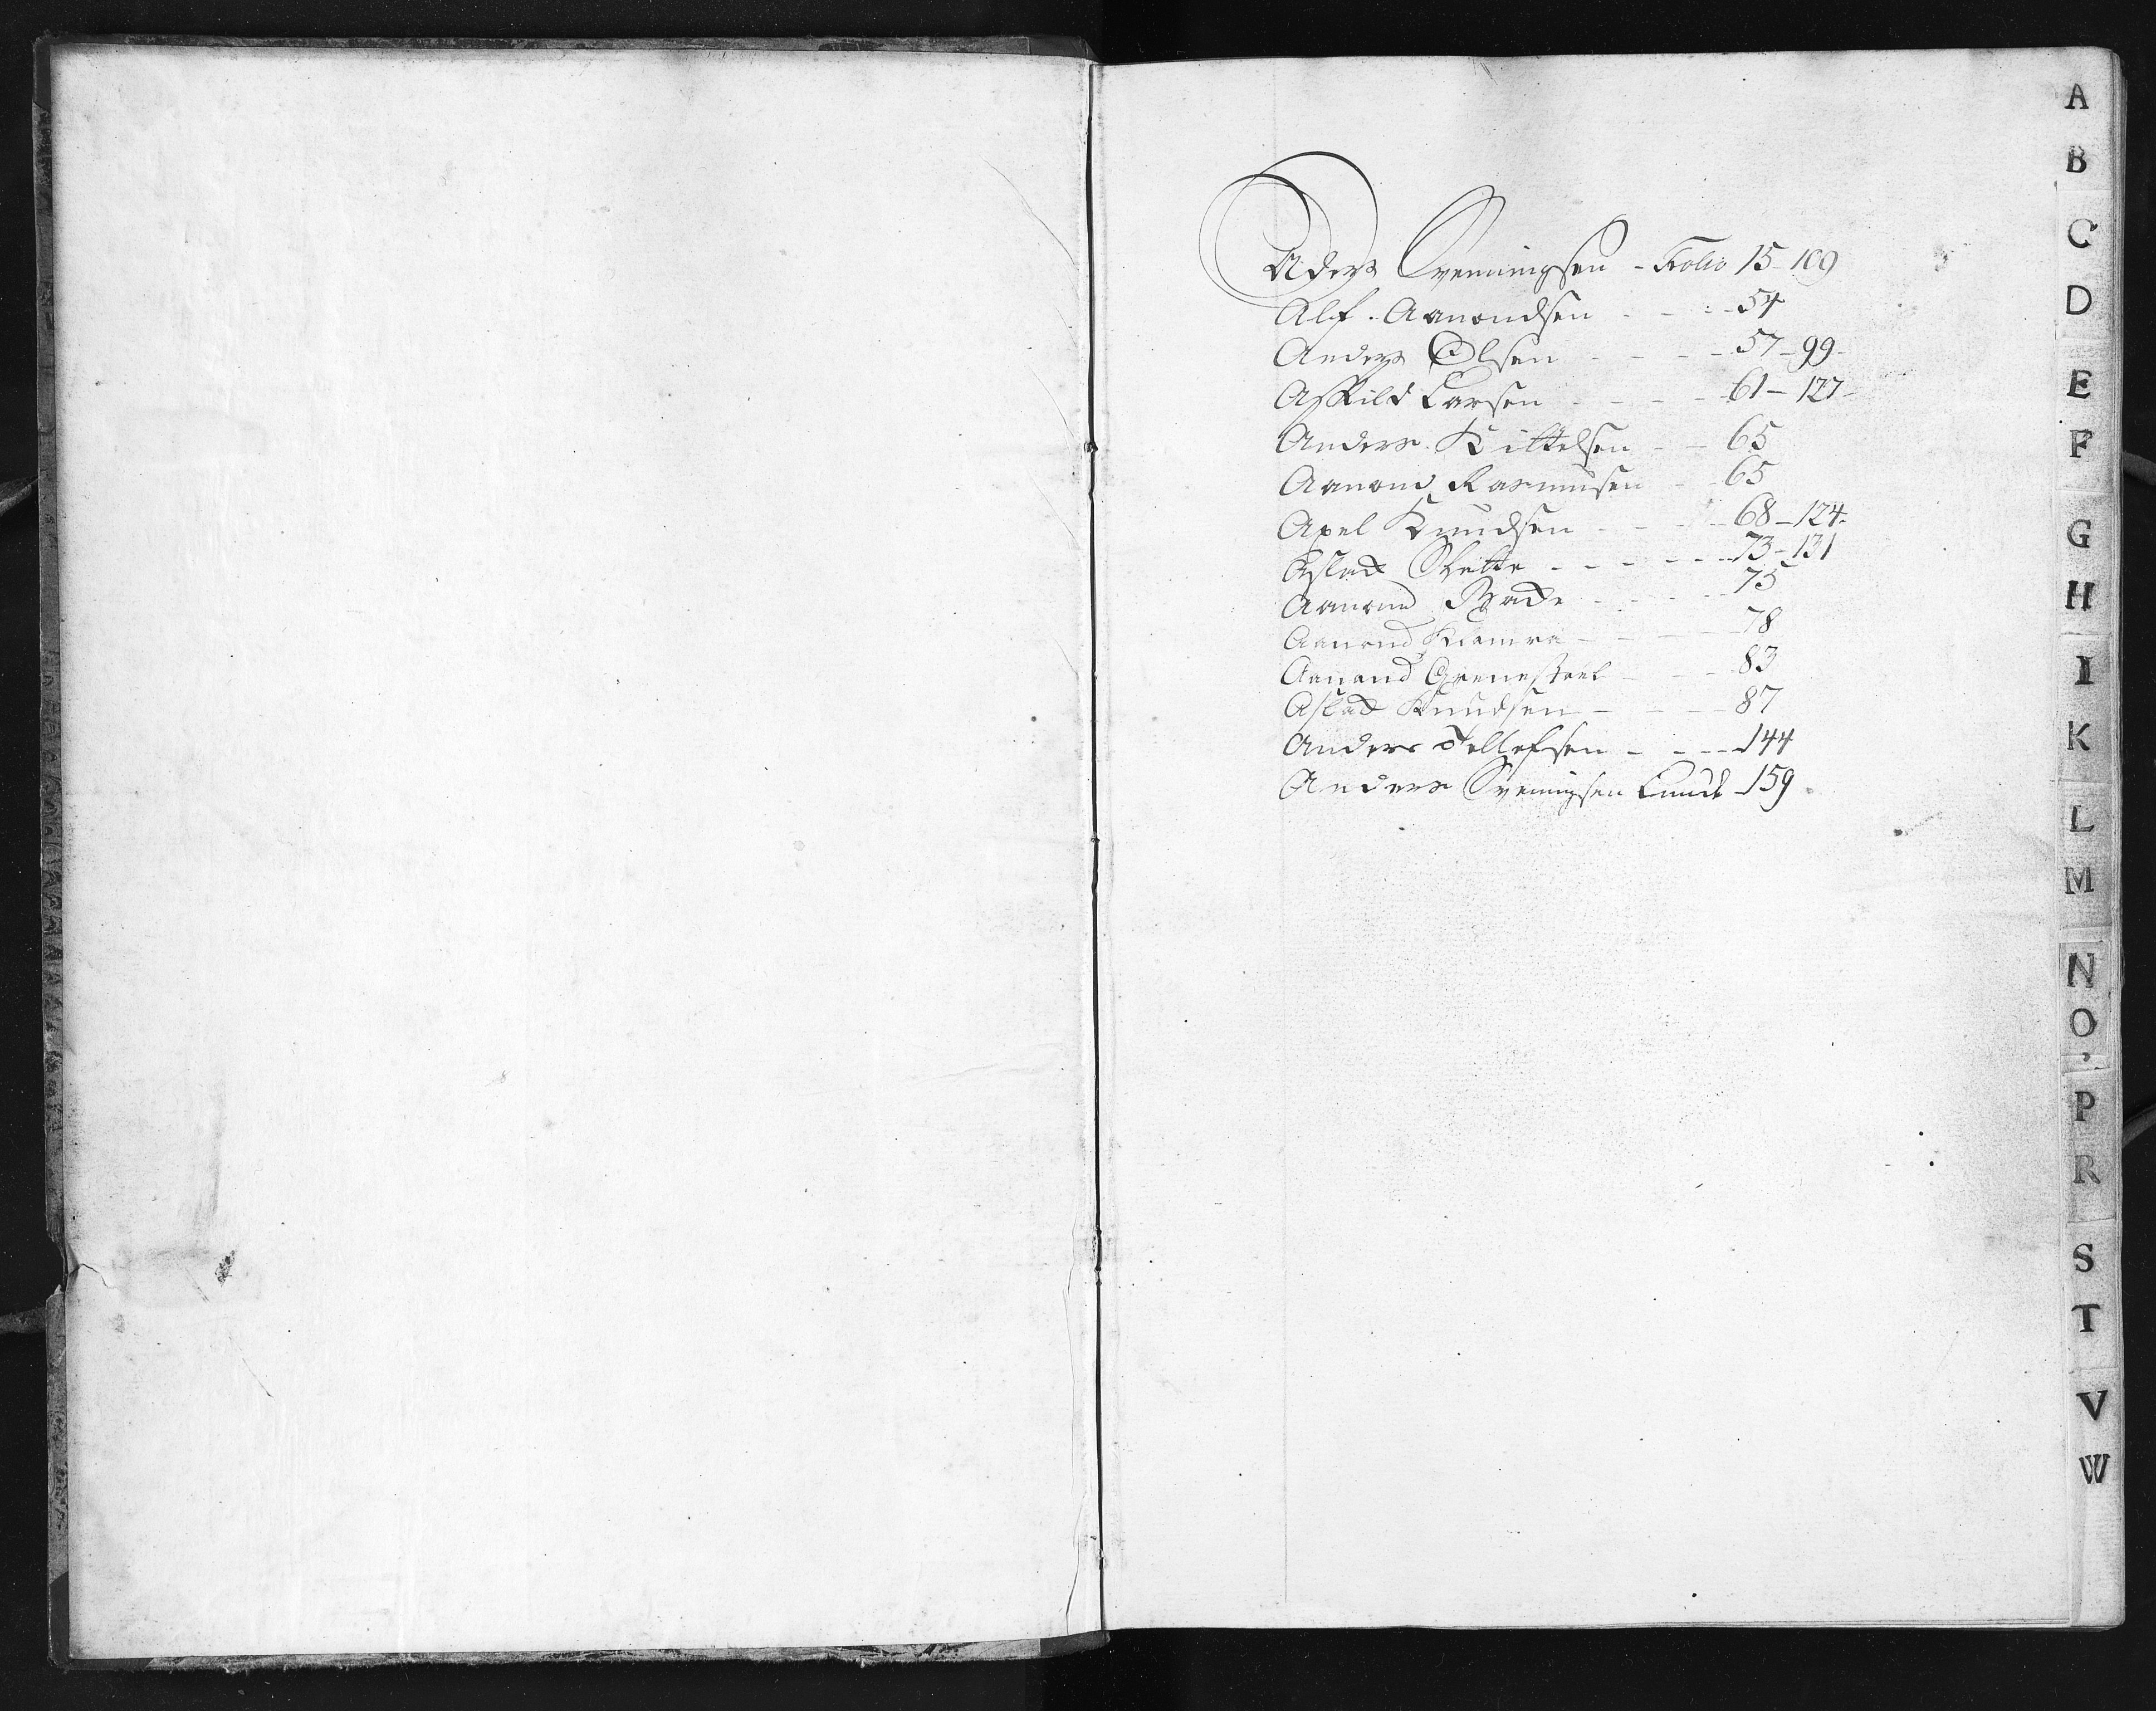 Anders Svenningsen - Folio 15-109
Alf Aanondsen - - - 54
Anders Olsen - - - - 57-99-
Askild Larsen - - - - 61-127-
Anders Kittelsen - - 65
Aanond Rasmusen - - 65
Axel Knudsen - - - - 68-124-
Aslack Slette - - - - - - 73-131
Aanond - - - - 75
Aanond - - - - 78
Aanand - - - 83
Aslack Knudsen - - - - 87
Anders Tellefsen - - - - 144
Anders Sveningsen Lunde 159
A
B
C
D
E
F
G
H
I
K
L
M
N
O
P
R
S
T
V
W